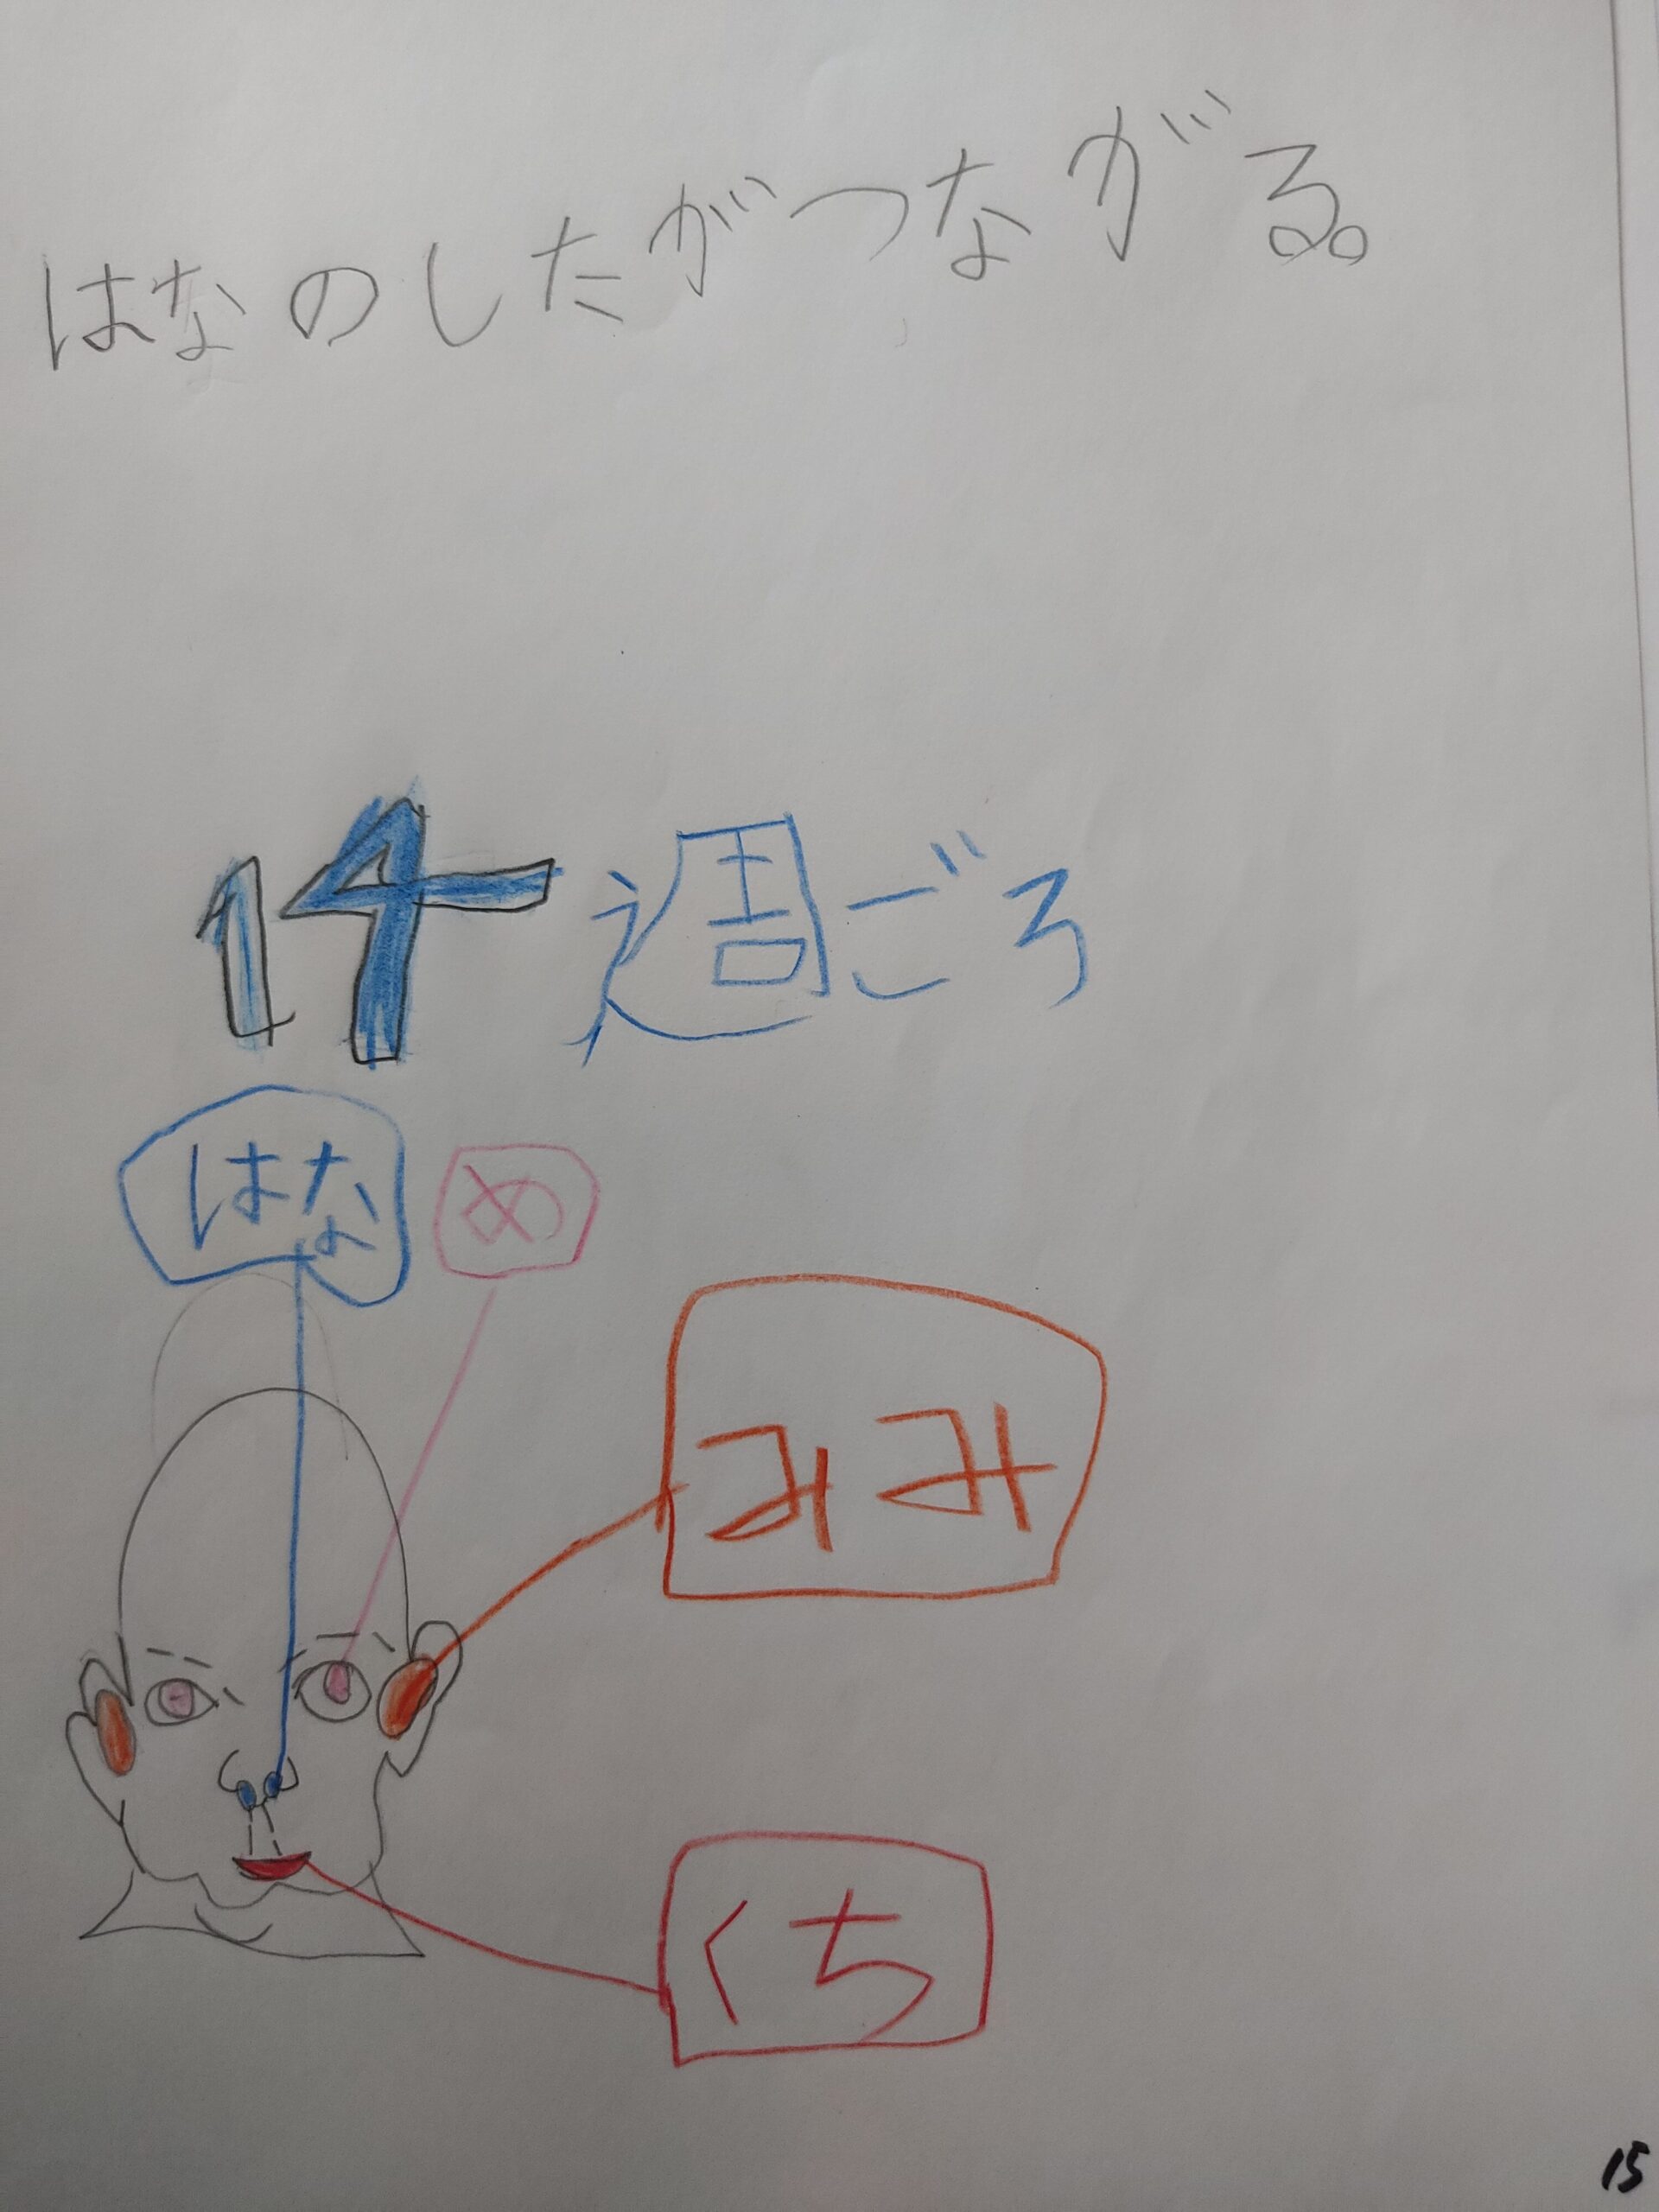 はなのしたがつながる。
14週ごろ
はな
め
みみ
くち
15